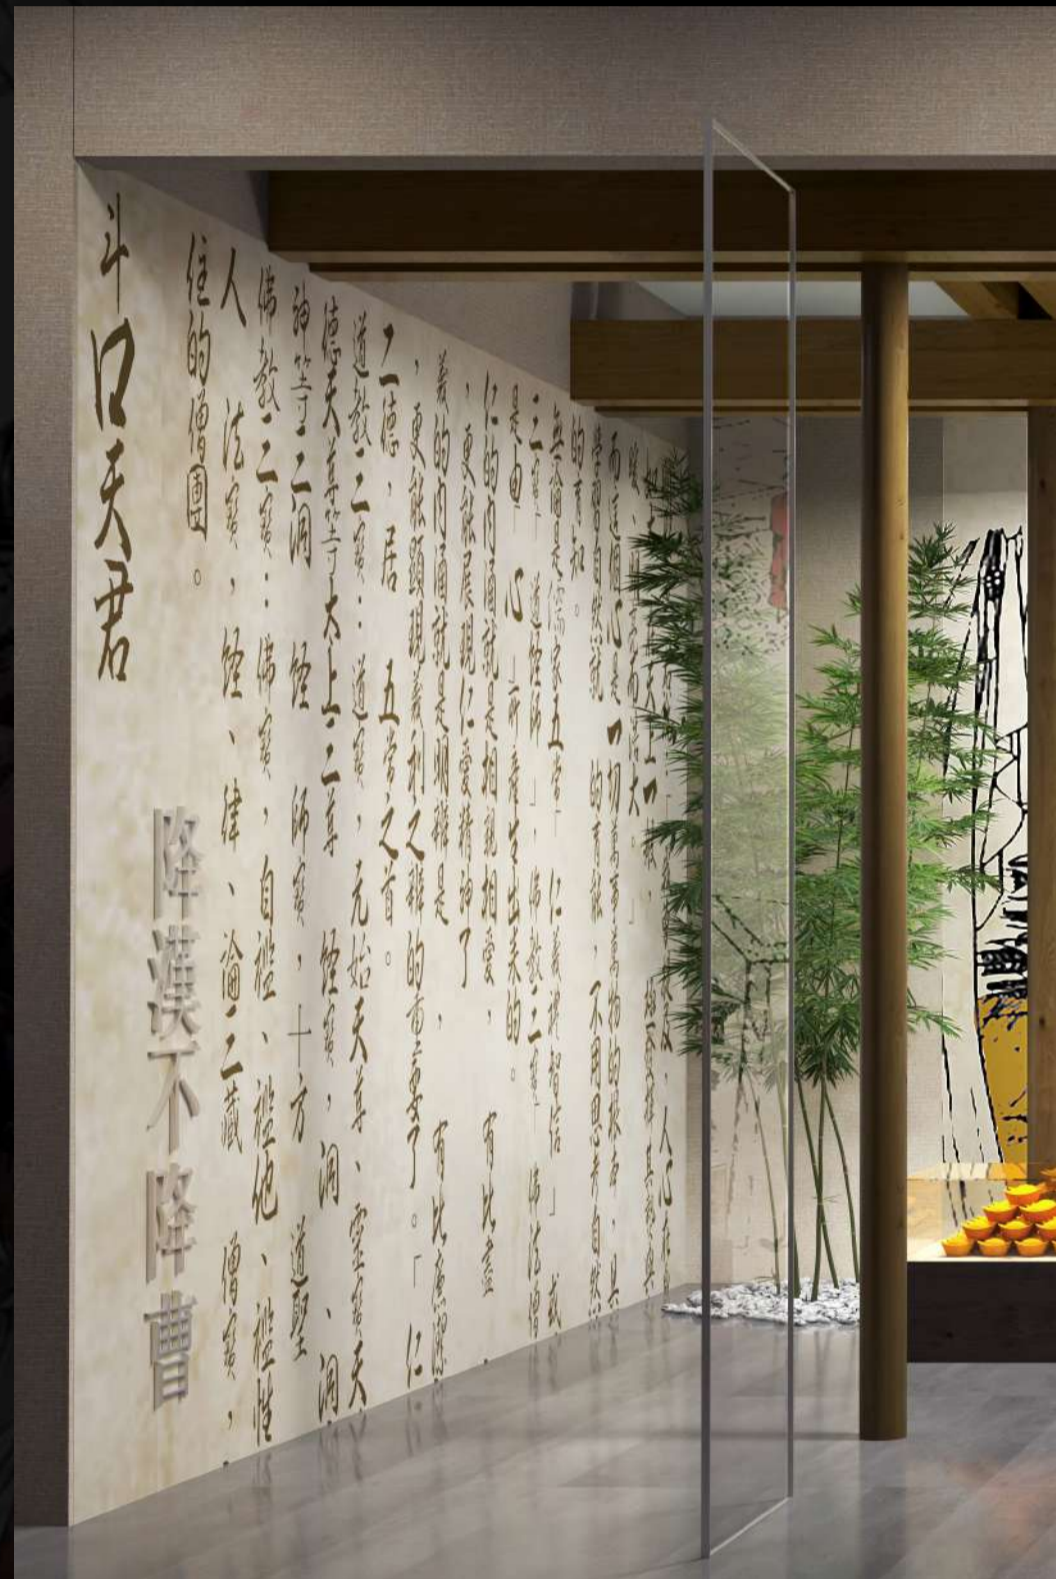 而這個心是一切萬事萬物的根本,具
學習自然就 的有能,不用思考自然
的有知。
無論是儒家五常「仁義禮智信」或
三寶「道經師」,佛教三寶「佛法僧
是由「心」所產生出來的。
仁的內涵就是相親相愛, 有比盡
,更能展現仁愛精神了
義的內涵就是明辨是 , 有比廉潔
,更能顯現義利之辨的重要了。「仁
二德,居 五常之首。
道教三寶:道寶,元始天尊、靈寶天
德天尊等太上三尊 經寶,洞 、洞
神等三洞 經 師寶,十方 道聖
佛教三寶:佛寶,自 、 他、 性
人 法寶,經、律、論三藏 僧寶,
住的僧團。
降漢不降曹
斗口天君